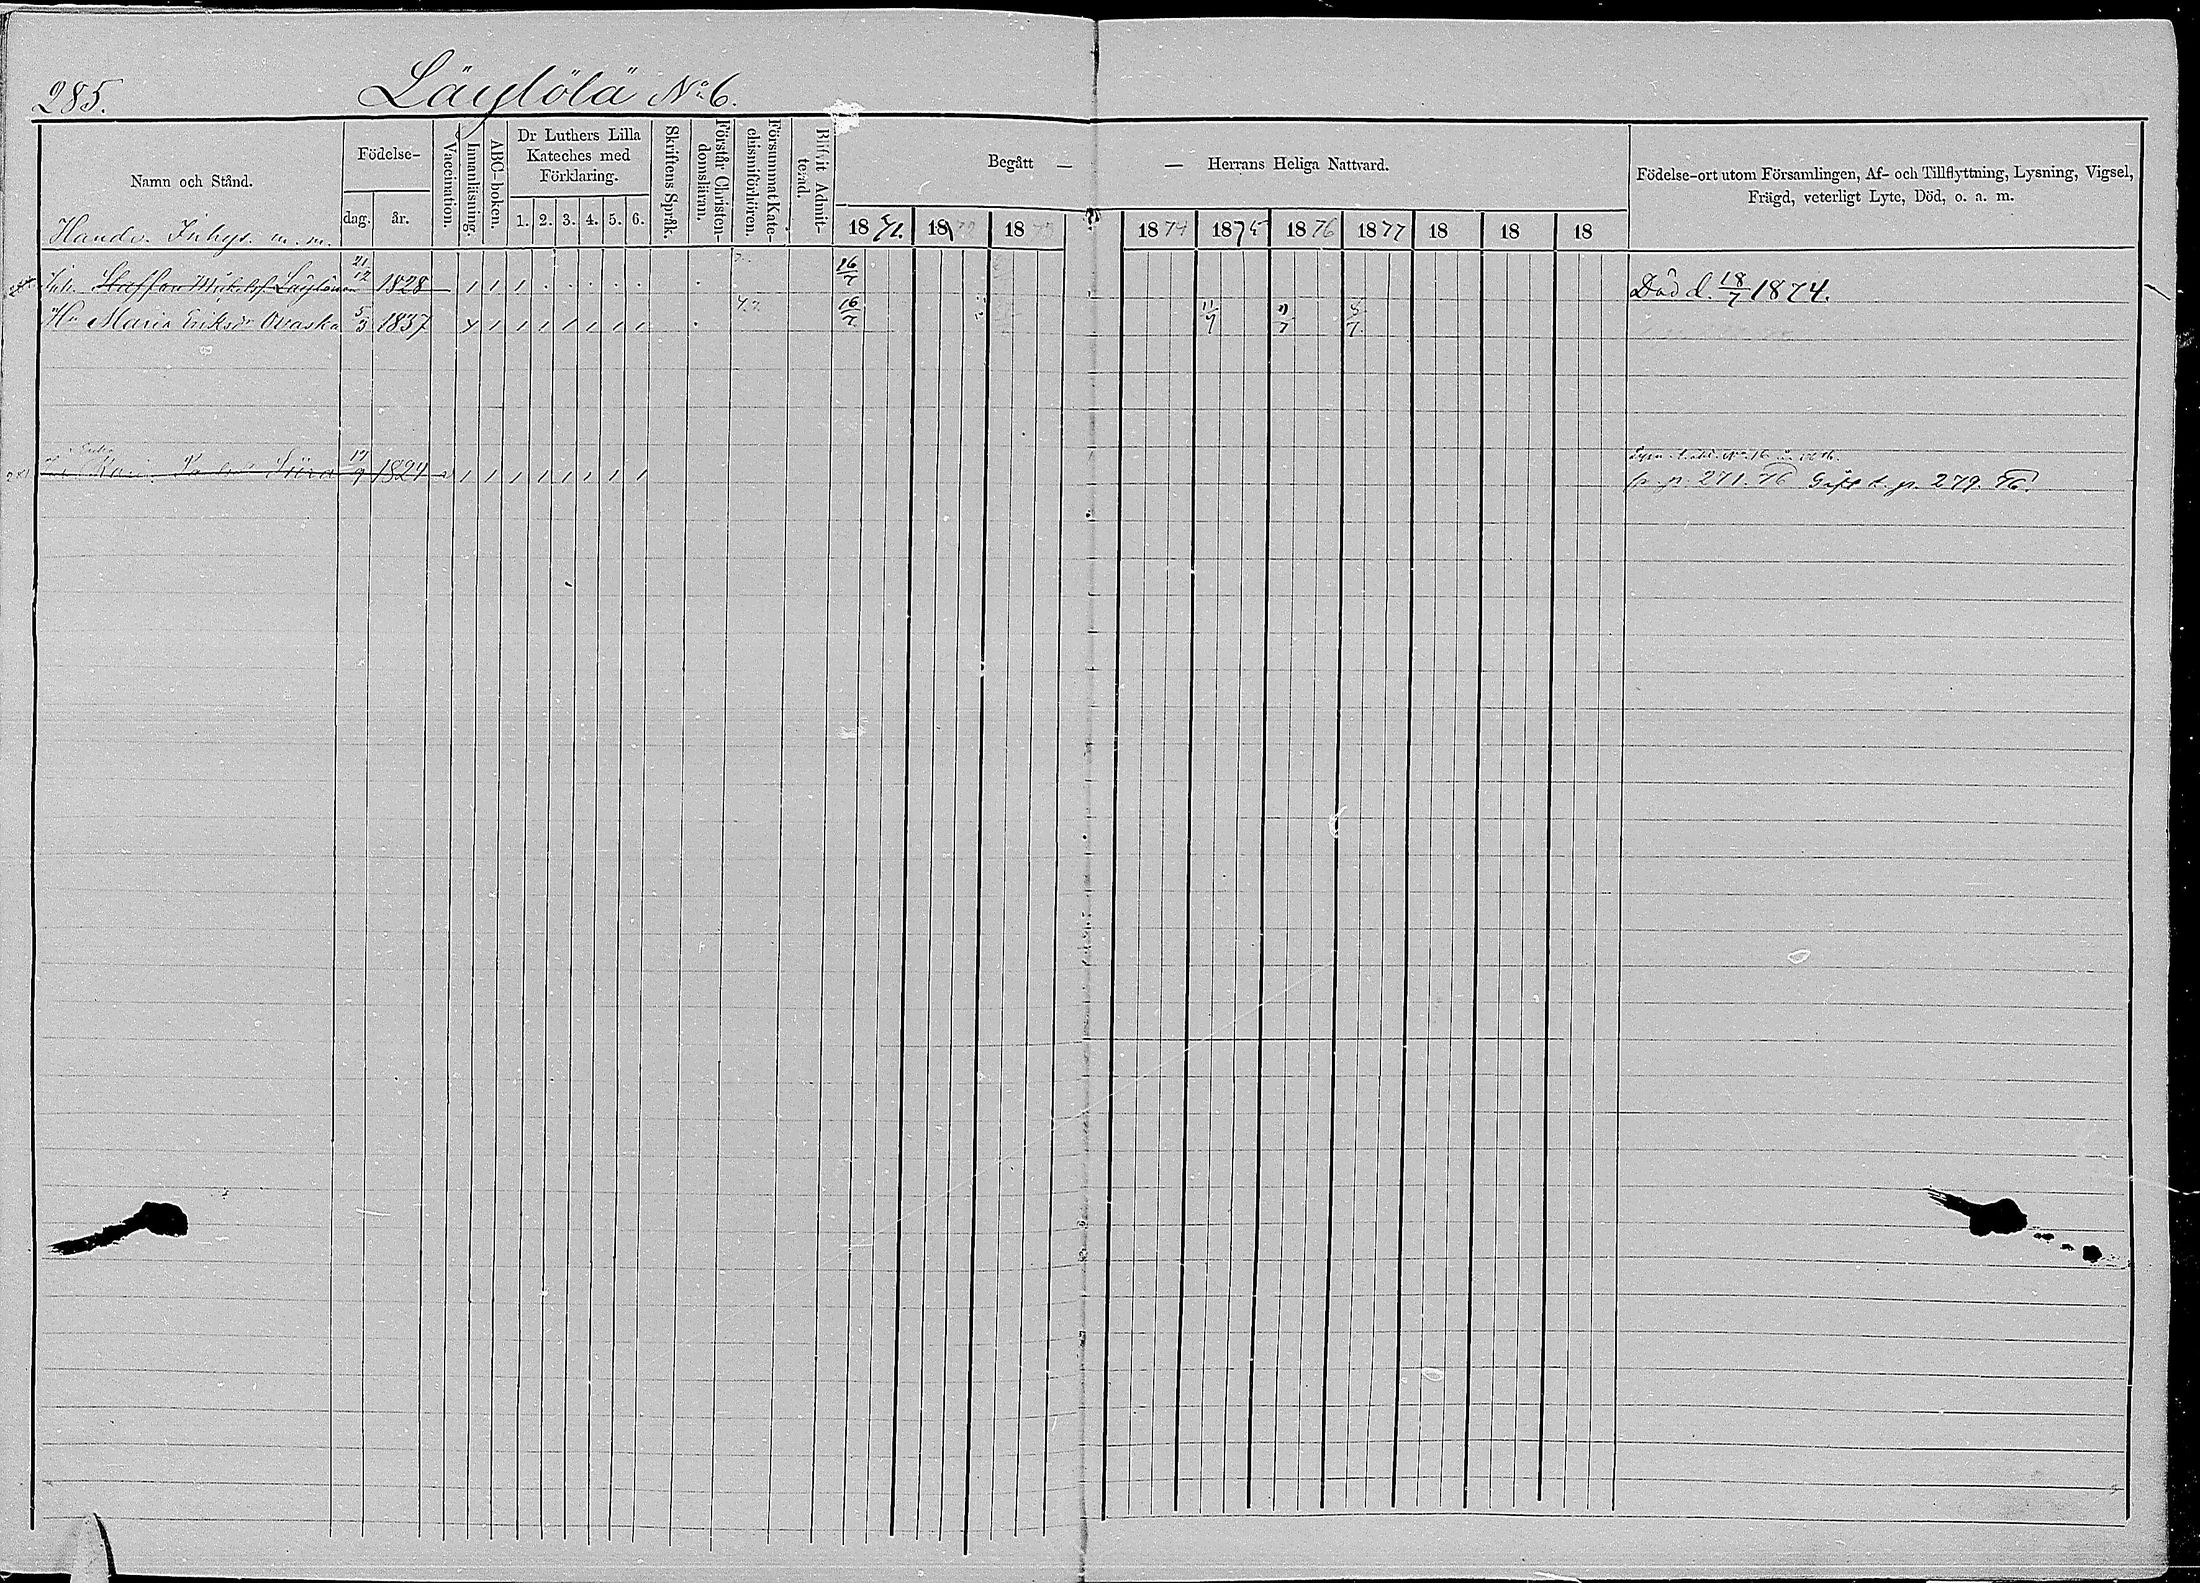 285. Läylölä No 6.
Namn och Stånd.
Födelse-
dag. år.
Vaccination.
Innanläsning.
ABC-boken.
Dr Luthers Lilla Kateches med Förklaring.
1. 2. 3. 4. 5. 6.
Skriftens Språk.
Förstår Christen-domsläran.
Försummat Kate-chismiförhören.
Blifvit Admit-terad.
Begått — — Herrans Heliga Nattvard.
1871. 1872 1873 1874 1875 1876 1877 18 18 18
Födelse-ort utom Församlingen, Af- och Tillflyttning, Lysning, Vigsel,
Frägd, veterligt Lyte, Död, o. a. m.
Handv. Inhys. m. m.
Staffan Läylönen 21/12 1828 16/7 Död d. 18/7 1874.
Hu Maria Eriksdr Ovaska 5/3 1837 16/7 11/7
17/9 1824
fr. p. 271. 76 Gift t. p. 279. 76.